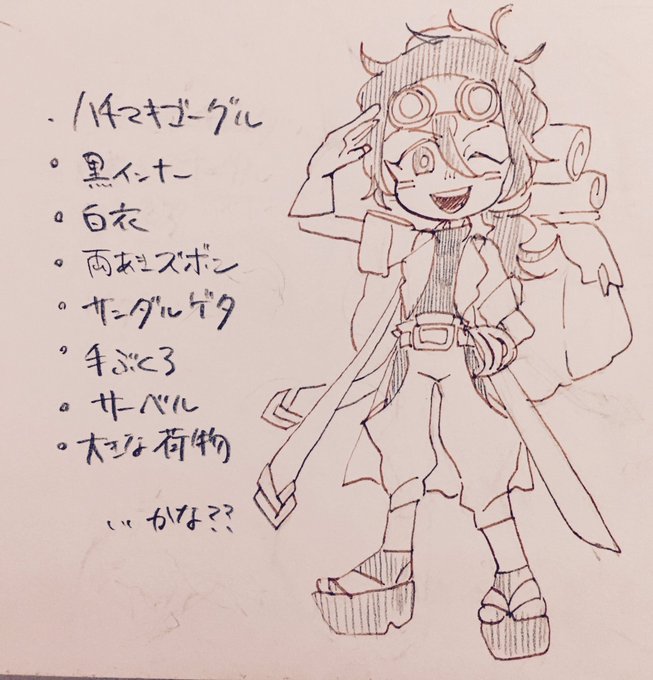 ・ハチマキゴーグル
・黒インナー
・白衣
・両あきズボン
・サンダルゲタ
・手ぶくろ
・サーベル
・大きな荷物
いいかな??